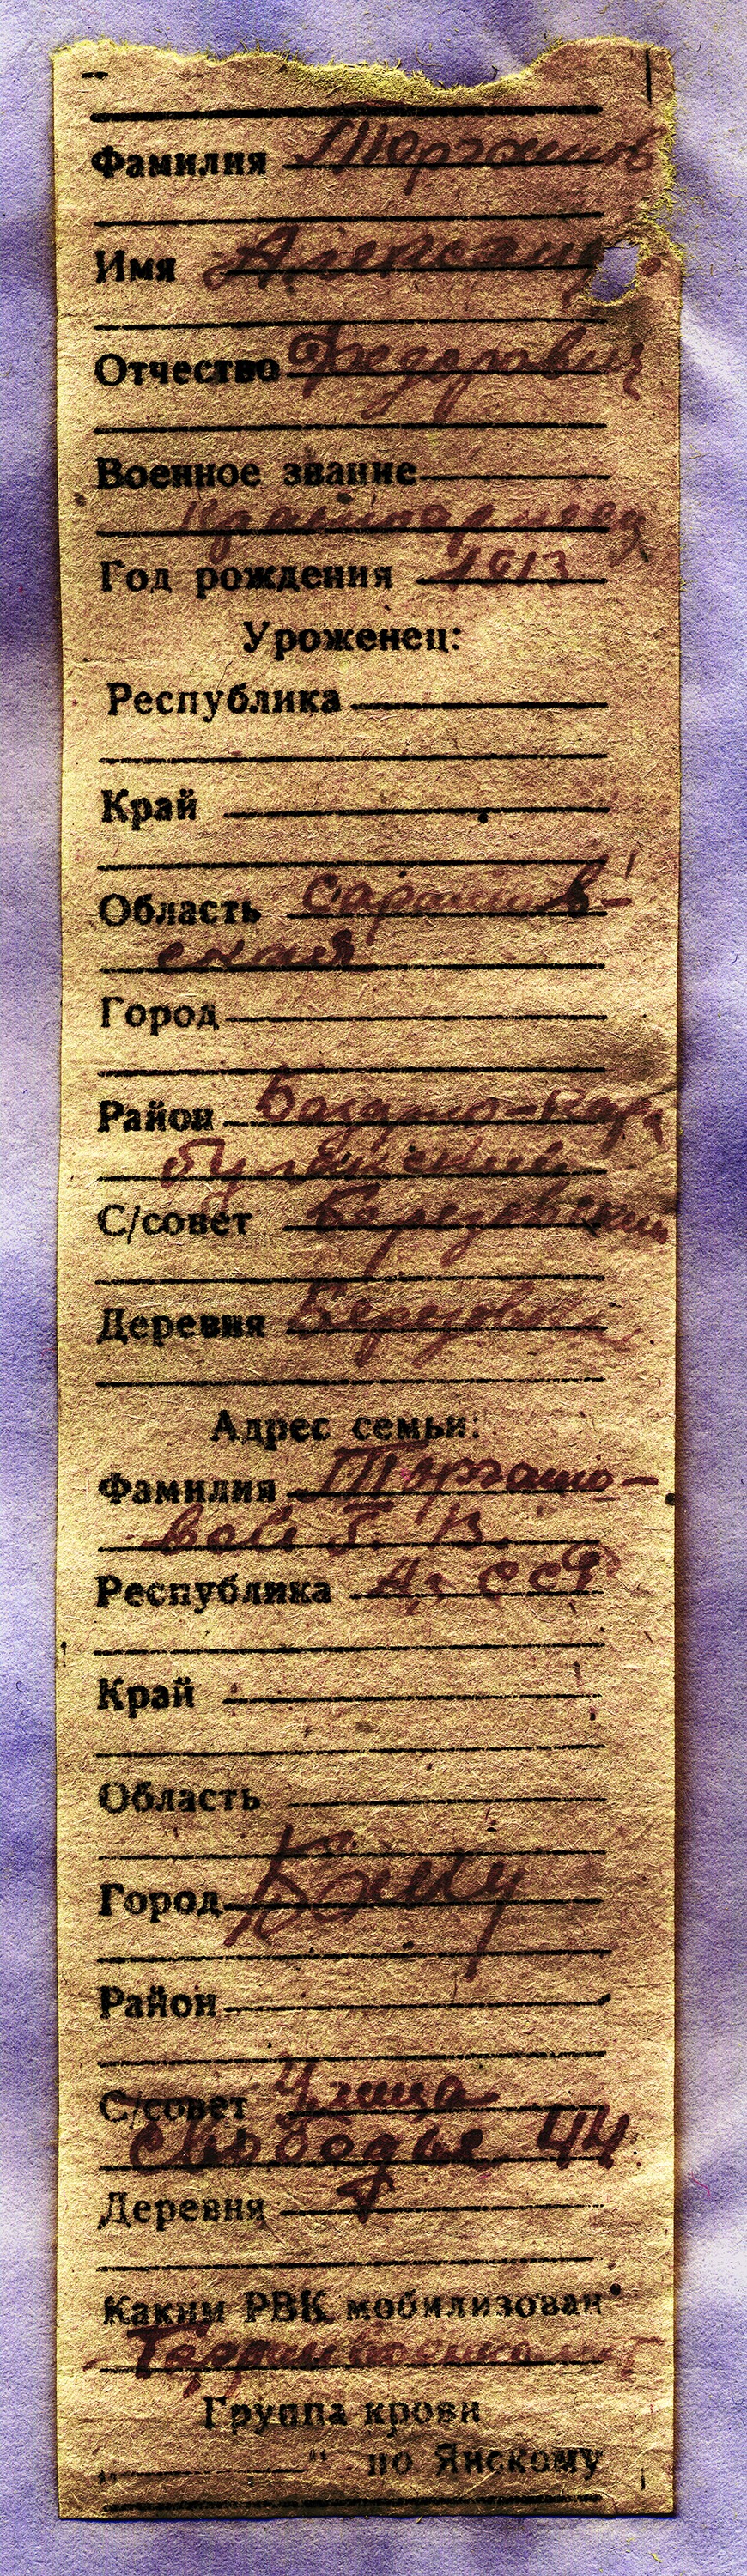 Фамилия Торгашов
Имя Александр
Отчество Федорович
Военное звание
Красноармеец
Год рождения 1913
Уроженец:
Республика
Край
Область Саратов-
ская
Город
Район
С/совет Березовский
Деревня
Адрес семьи:
Фамилия Торгашо-
вой
Республика Аз. ССР
Край
Область
Город Баку
Район
С/совет Улица
Свободы 44
Деревня
Каким РВК мобилизован
Группа крови
„ “ по Янскому